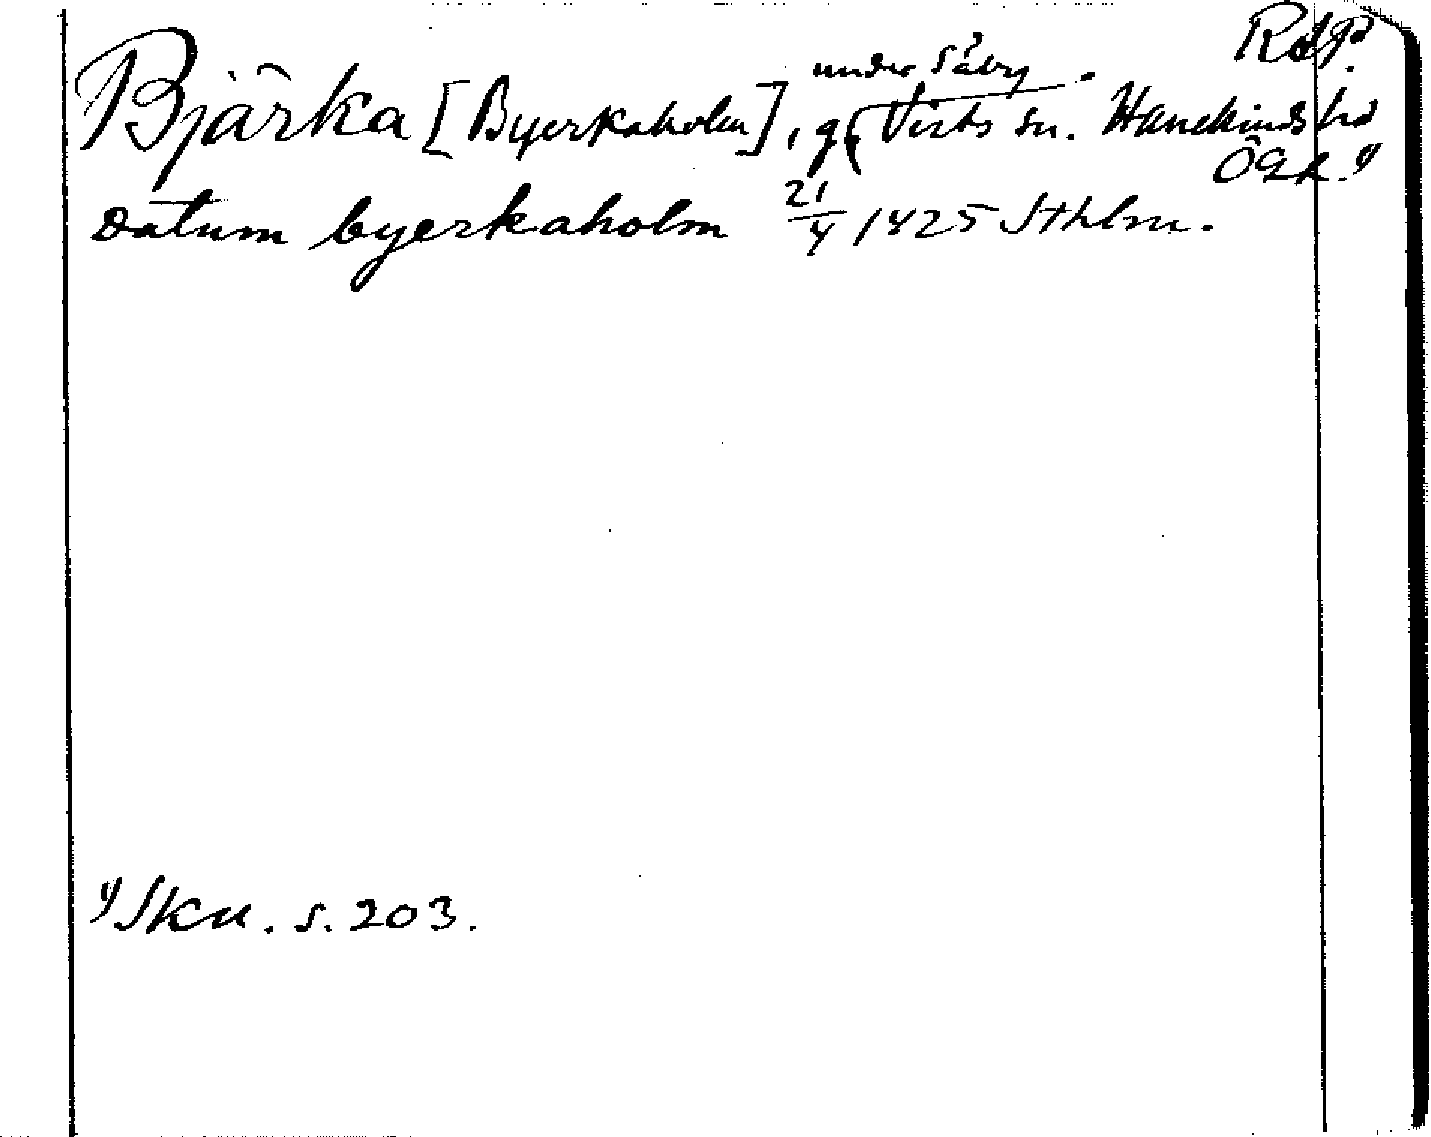 RdP.
under Säby.
Bjärka [Byerkaholm], g. (Vists sn. Hanekinds hd
Ögl. 1)
Datum byerkaholm 21/4 1425 Sthlm.
1) Sku. s. 203.